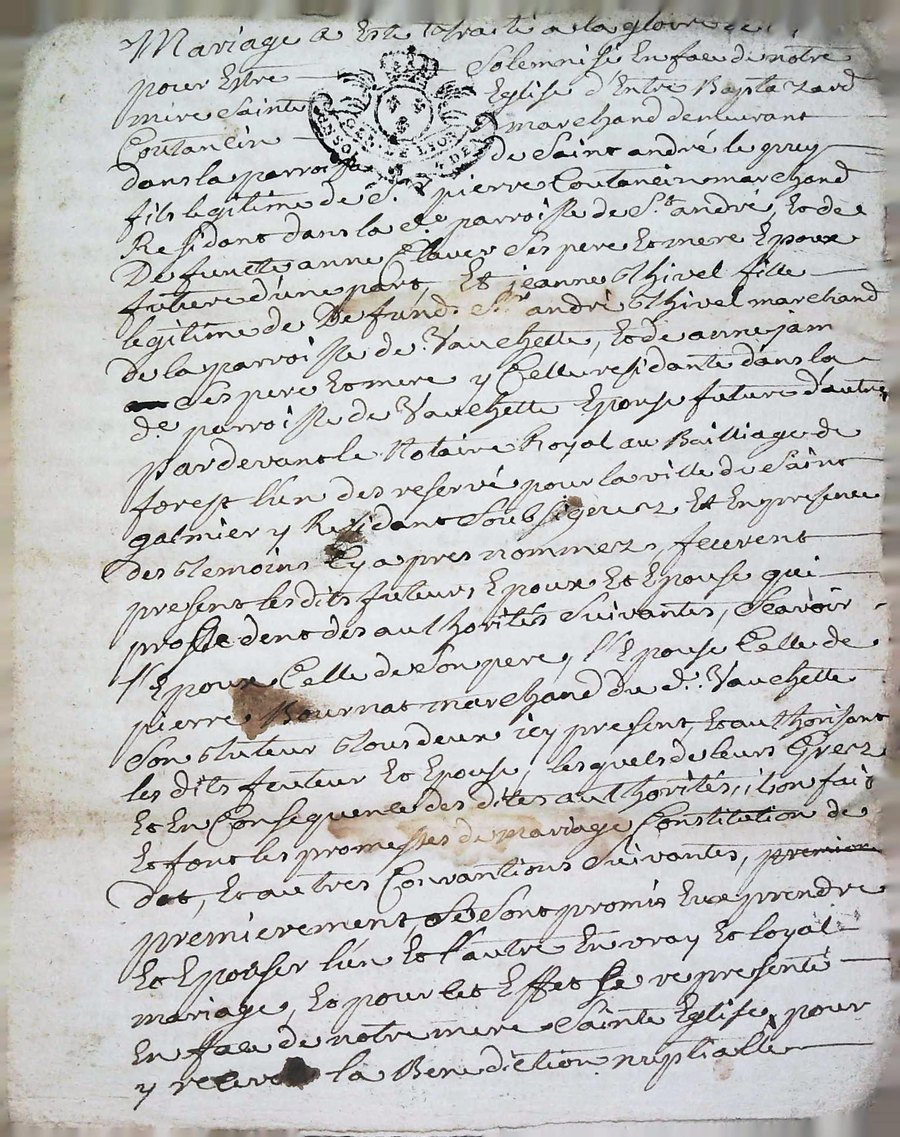 Mariage a Esté traité a la gloire de
pour Estre Solemnisé En face de notre
mere Sainte Eglise d'Entre Baptazard
Coutancin marchand demeurant
dans la parroisse de Saint andré le puy
fils legitime de Sr. pierre Coutancin marchand
Residant dans la de. parroisse de St andré, Et de
Defuncte anne Clauer Ses pere Et mere Epoux
future d'une part, Et jeanne thivel fille
legitime de Defund. Sr. andré thivel marchand
de la parroisse de Vauchette, Et de anne jam
Ses pere Et mere y Celle residante dans la
de. parroisse de Vauchette Epouse future d'autre
pardevant le Notaire Royal au Bailliage de
forest l'un des reservé pour la ville de Saint
galmier y Residant Soubsignez Et En presence
des temoins Cy apres nommez, feurent
present les dits futurs Epoux Et Epouse qui
procedent des authorités Suivantes, Scavoir
l'Epoux Celle de Son pere, l'Epouse Celle de
pierre Bournat marchand du d. Vauchette
Son tuteur tous deux icy present, Et authorisant
les dits feuteur Et Epouse, lesquels de leurs Grez
Et En Consequence des dites authorités, ont fait
Et font les promesses de mariage Constitution de
dot, Et autres Convantions Suivantes, premier
premierement, Se Sont promis Eux prendre
Et Epouser l'un Et l'autre En vray Et loyal
mariage, Et pour Cet Effet Se representé
En face de notre mere Sainte Eglise pour
y recevoir la Benediction nuptialle